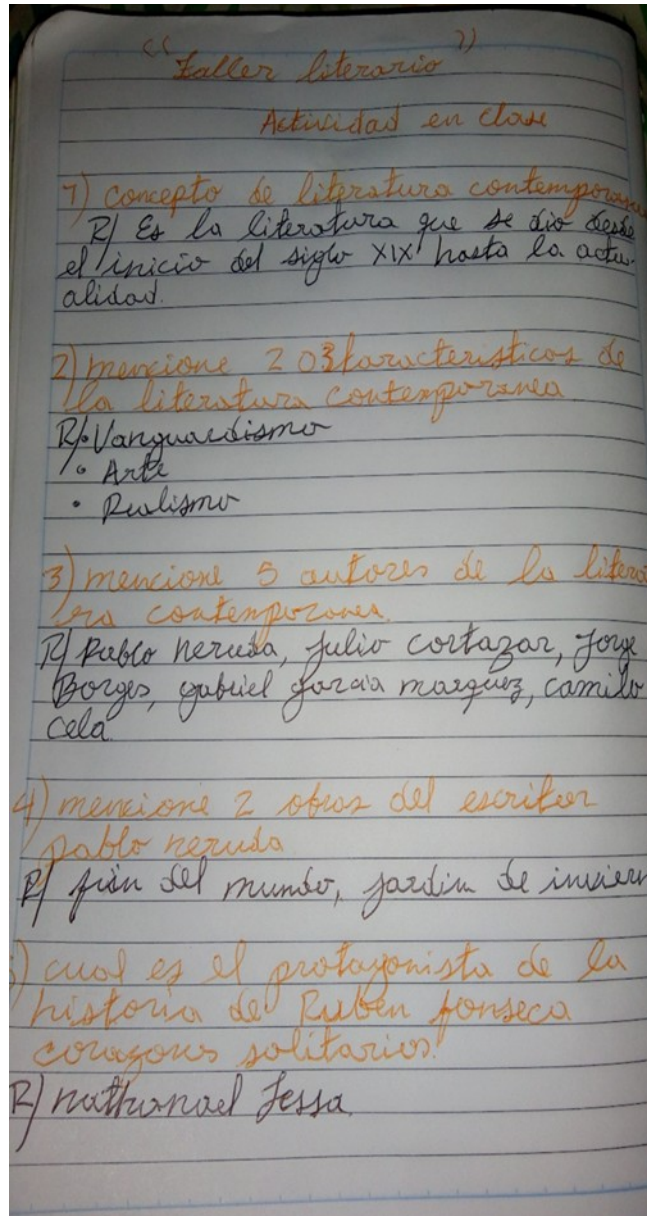 "Taller literario"
Actividad en clase
1) concepto de literatura contemporanea
R/ Es la literatura que se dio desde
el inicio del siglo XIX hasta la actu-
alidad.
2) mencione 2 o 3 caracteristicas de
la literatura contemporanea
R/• Vanguardismo
• Arte
• Realismo
3) mencione 5 autores de la litera
ra contemporanea.
R/ Pablo neruda, julio cortazar, Jorge
Borges, gabriel garcia marquez, camilo
cela
4) mencione 2 obras del escritor
pablo neruda
R/ fin del mundo, jardin de inviern
) cual es el protagonista de la
historia de Ruben fonseca
corazones solitarios.
R) nathanael Lessa